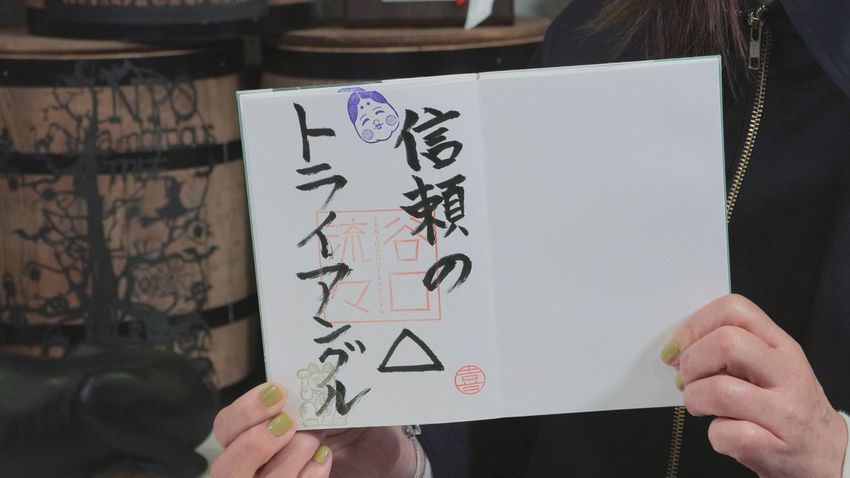 信頼の△
トライアングル
谷口
流々
TANIGUCHI RYURYU
喜
NPO